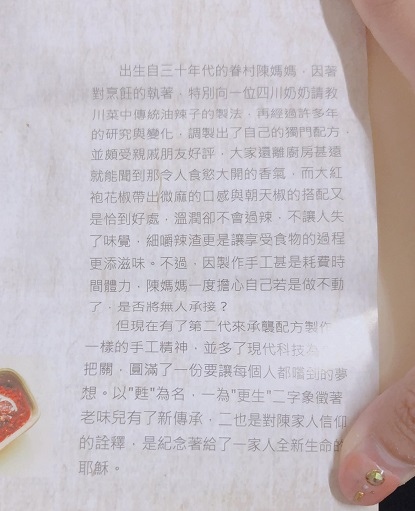 出生自三十年代的眷村陳媽媽，因著
對烹飪的執著，特別向一位四川奶奶請教
川菜中傳統油辣子的製法，再經過許多年
的研究與變化，調製出了自己的獨門配方，
並頗受親戚朋友好評，大家還離廚房甚遠
就能聞到那令人食慾大開的香氣，而大紅
袍花椒帶出微麻的口感與朝天椒的搭配又
是恰到好處，溫潤卻不會過辣，不讓人失
了味覺，細嚼辣渣更是讓享受食物的過程
更添滋味。不過，因製作手工甚是耗費時
間體力，陳媽媽一度擔心自己若是做不動
了，是否將無人承接？
但現在有了第二代來承襲配方製
一樣的手工精神，並多了現代科技
把關，圓滿了一份要讓每個人都嚐到的夢
想。以"甦"為名，一為"更生"二字象徵著
老味兒有了新傳承，二也是對陳家人信仰
的詮釋，是紀念著給了一家人全新生命的
耶穌。